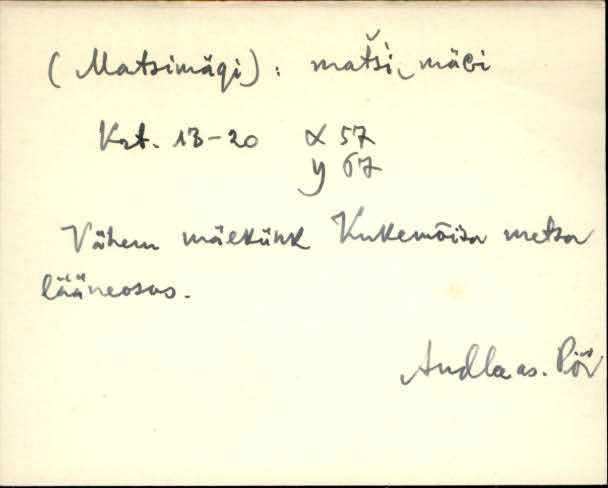 (Matsimägi): matši‿mäɢi
Krt. 13-20 x 57
y 67
Vähem mäekünk Kukemõisa metsa
lääneosas.
Audla as. Pöi